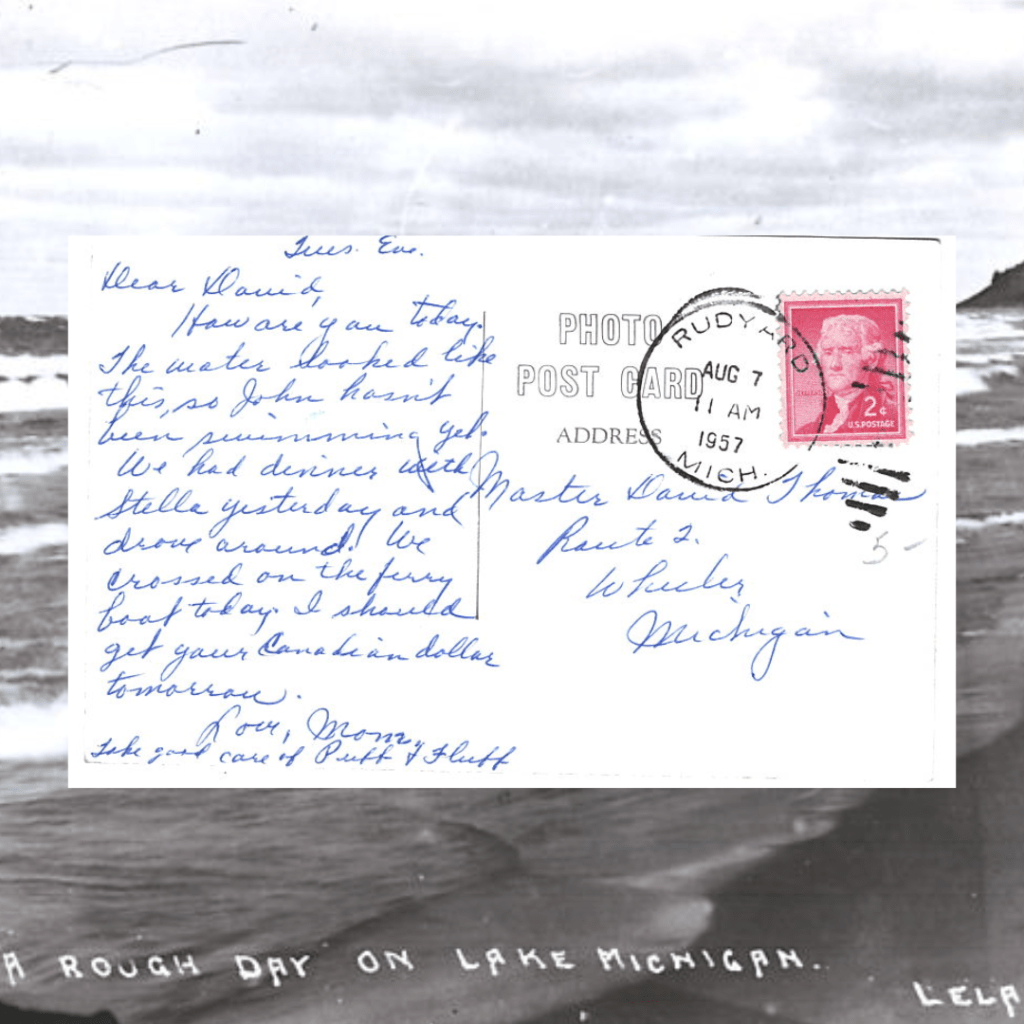 Tues. Eve.
Dear David,
How are you today.
The water looked like
this, so John hasn't
been swimming yet.
We had dinner with
Stella yesterday and
drove around. We
crossed on the ferry
boat today. I should
get your Canadian dollar
tomorrow.
Love, Mom.
Take good care of Puff & Fluff
PHOTO
POST CARD
ADDRESS
RUDYARD
AUG 7
11 AM
1957
MICH.
2¢
U.S. POSTAGE
Master David Thomas
Route 2.
Wheeler
Michigan
5-
A ROUGH DAY ON LAKE MICHIGAN.
LELA